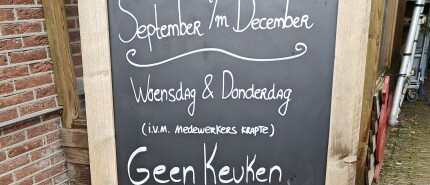 September t/m December
Woensdag & Donderdag
(i.v.m. medewerkers krapte)
Geen Keuken